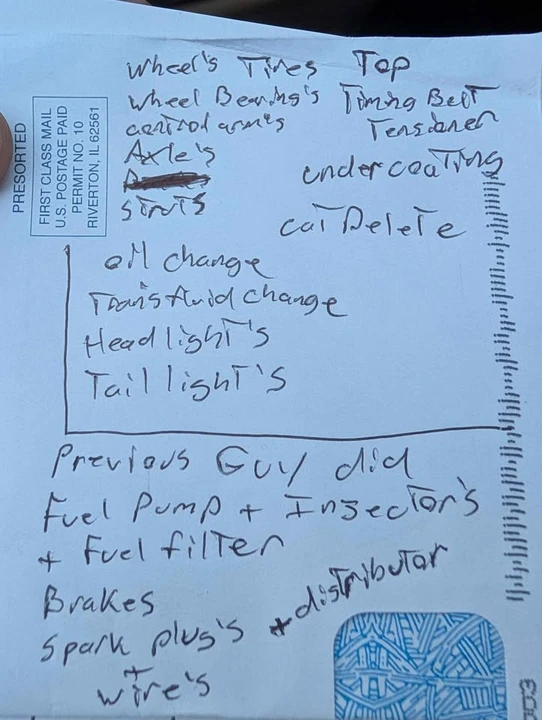 Wheel's Tires Top
Wheel Bearing's Timing Belt
control arm's Tensioner
Axle's
undercoating
struts
cat Delete
PRESORTED
FIRST CLASS MAIL
U.S. POSTAGE PAID
PERMIT NO. 10
RIVERTON, IL 62561
oil change
Trans fluid change
Head light's
Tail light's
Previous Guy did
Fuel Pump + Injector's
+ Fuel filter
Brakes
Spark plug's + distributor
+
wire's